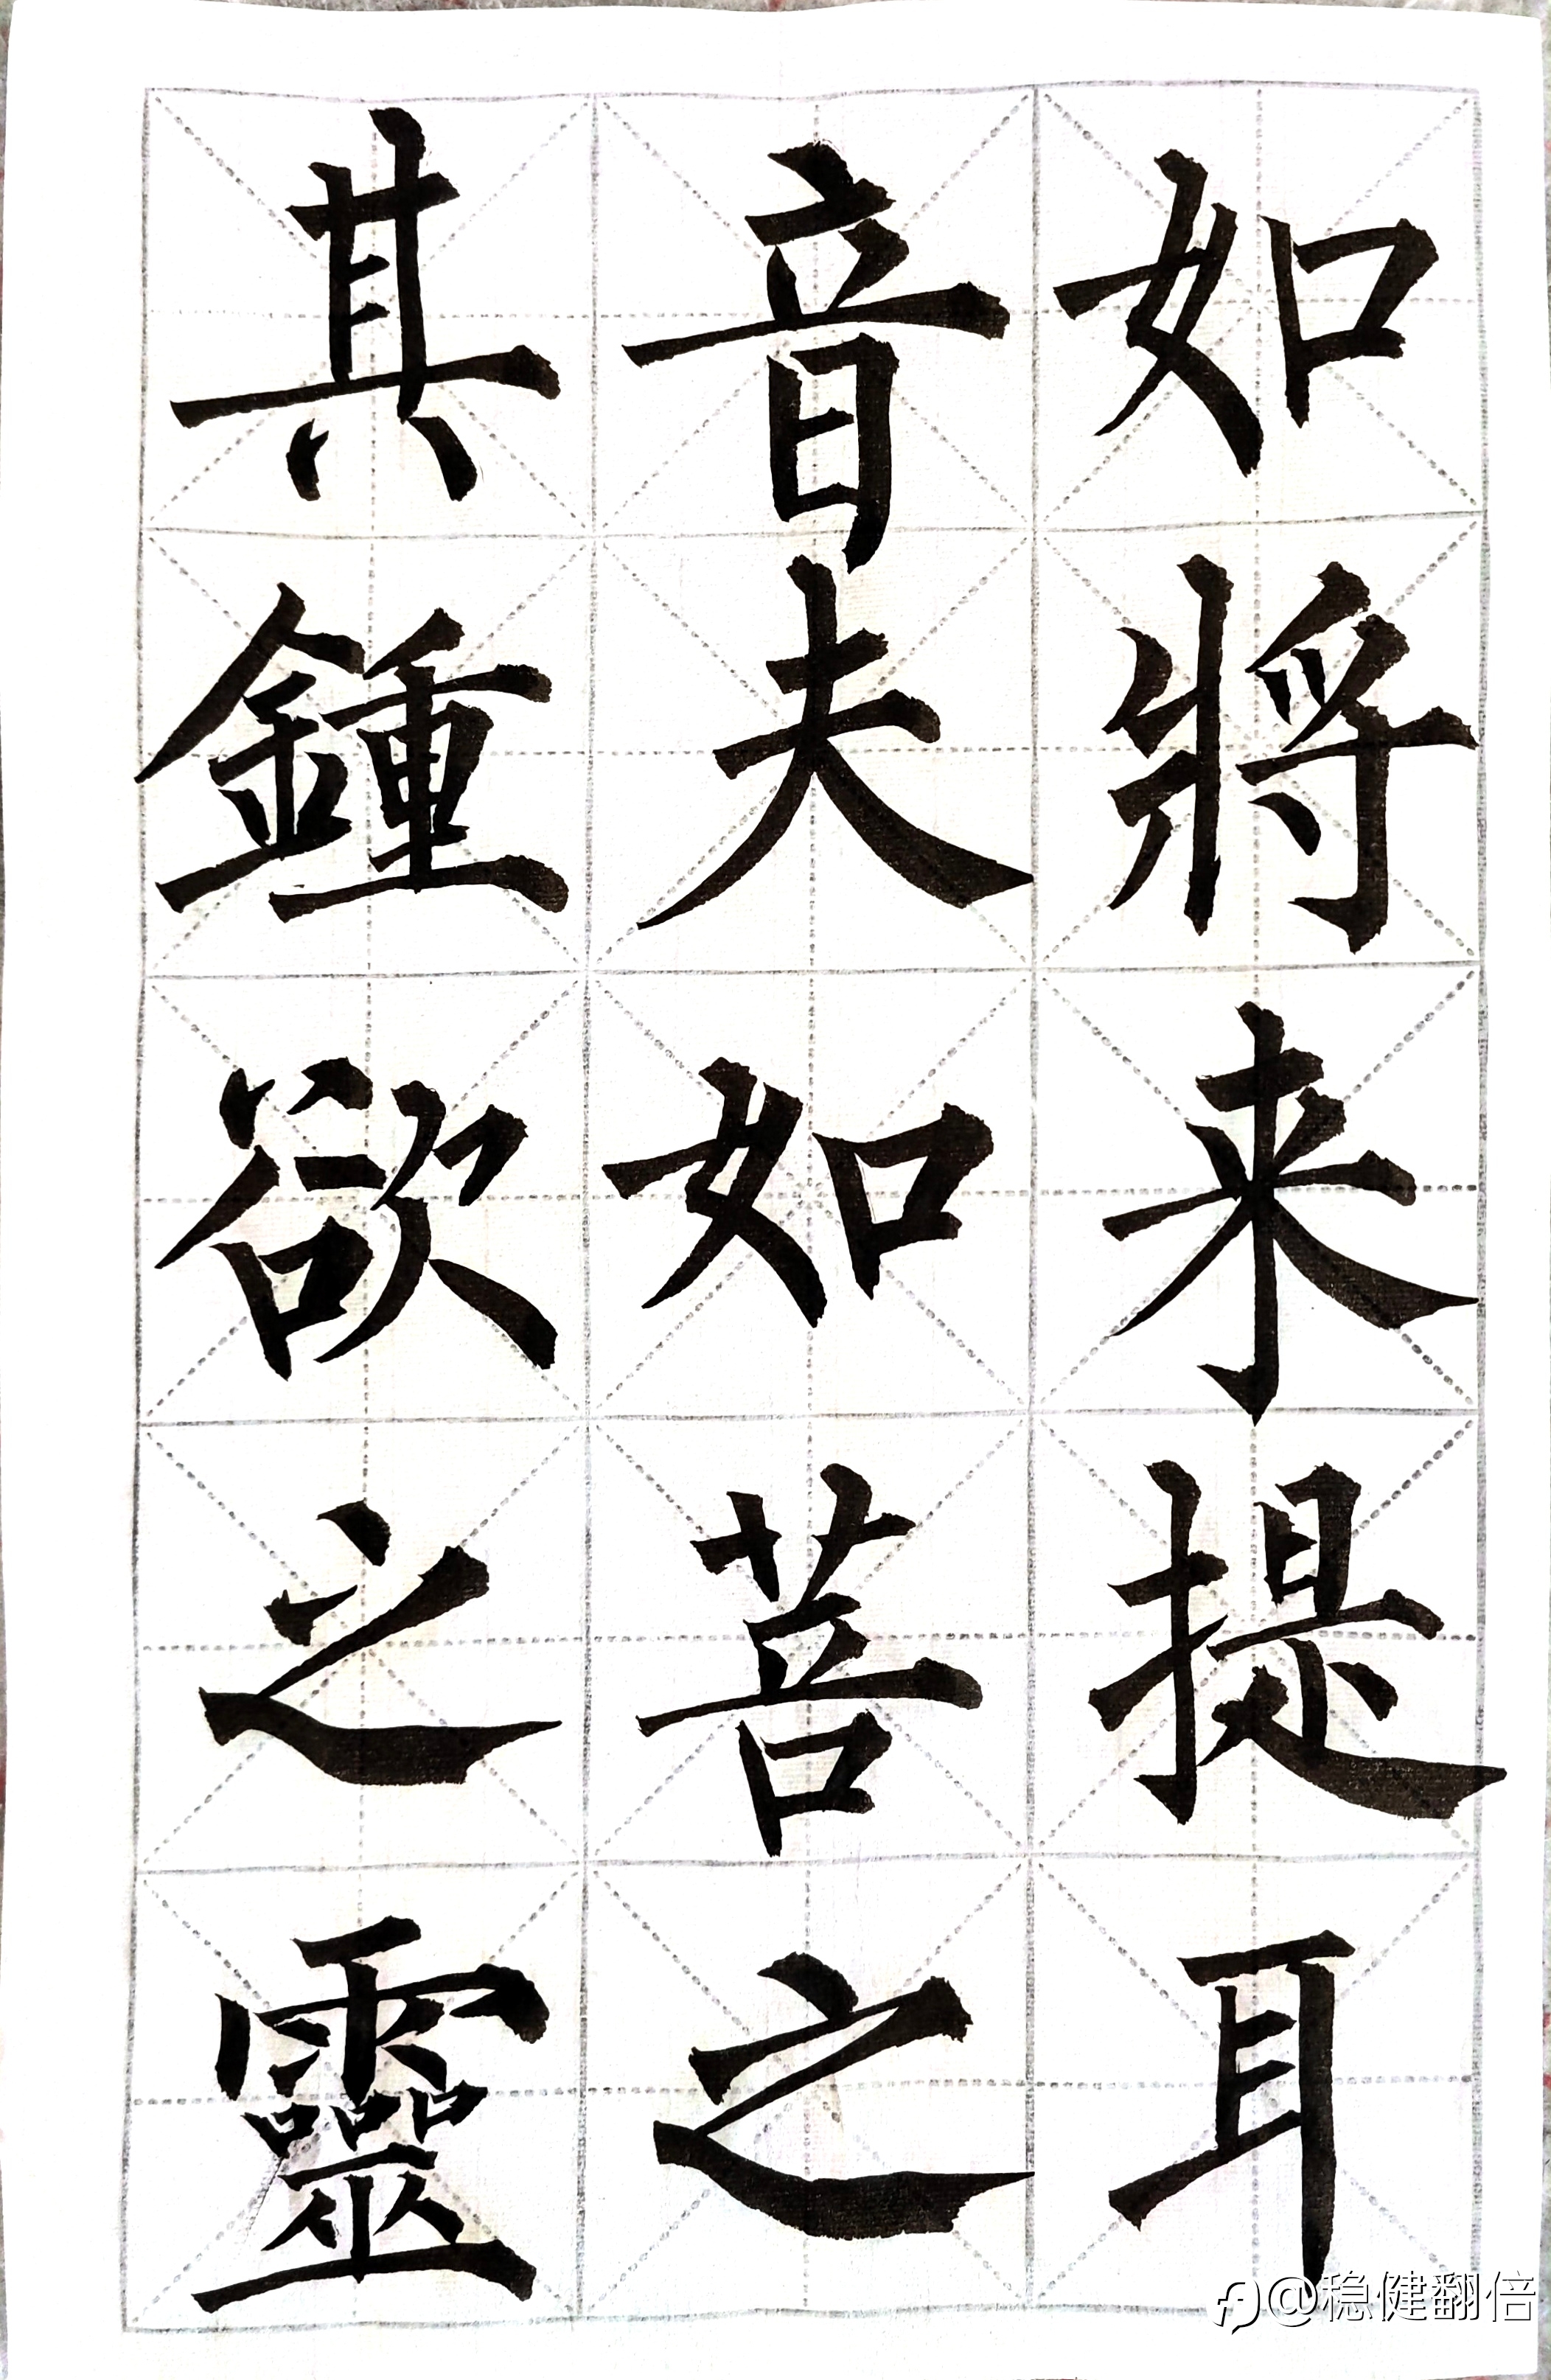 如將来提耳
音夫如菩之
其鍾欲之靈
@稳健翻倍